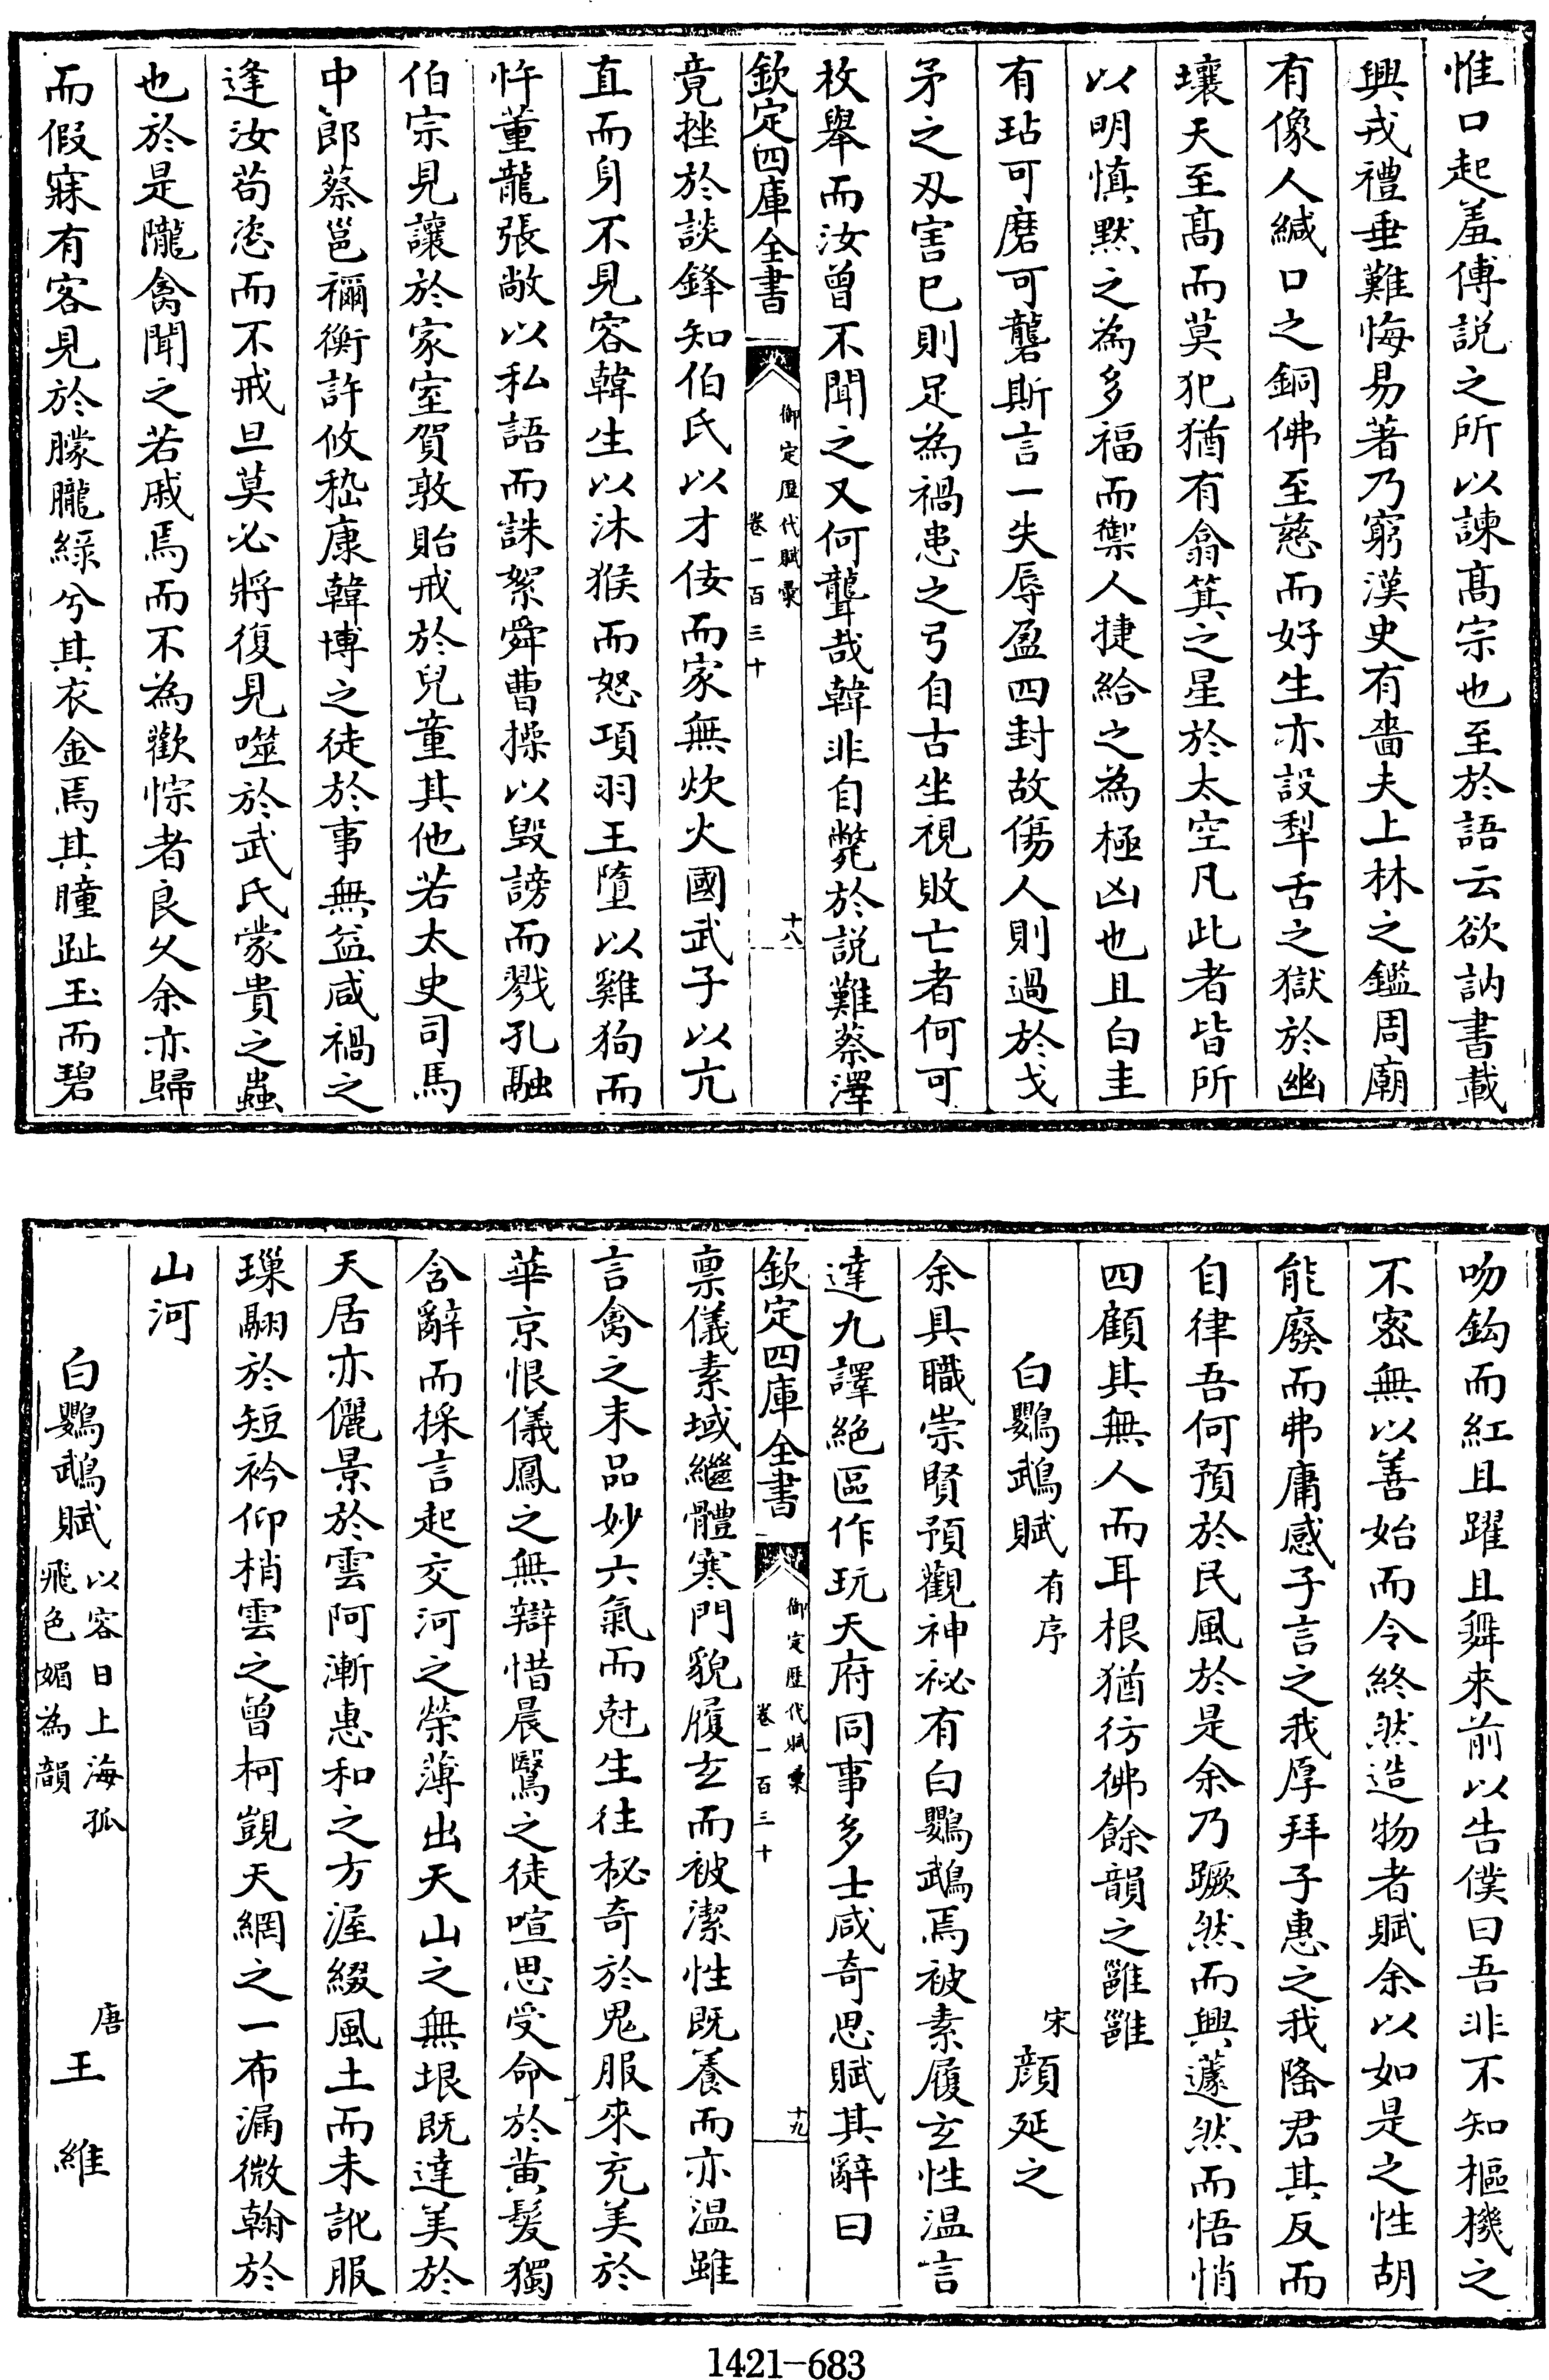 惟口起羞傅説之所以諫髙宗也至於語云欲訥書載
興戎禮垂難悔易著乃窮漢史有嗇夫上林之鑑周廟
有像人緘口之銅佛至慈而好生亦設犁舌之獄於幽
壤天至髙而莫犯猶有翕箕之星於太空凡此者皆所
以明慎黙之為多福而禦人捷給之為極凶也且白圭
有玷可磨可礱斯言一失辱盈四封故傷人則過於戈
矛之刃害已則足為禍患之弓自古坐視敗亡者何可
枚舉而汝曾不聞之又何聾哉韓非自斃於説難蔡澤
欽定四庫全書
御定歴代賦彚
卷一百三十
十八
竟挫於談鋒知伯氏以才佞而家無炊火國武子以亢
直而身不見容韓生以沐猴而怒項羽王墮以雞狗而
忤董龍張敞以私語而誅絮舜曹操以毁謗而戮孔融
伯宗見讓於家室賀敦貽戒於兒童其他若太史司馬
中郎蔡邕禰衡許攸嵇康韓博之徒於事無益咸禍之
逢汝苟恣而不戒旦莫必將復見噬於武氏蒙貴之蟲
也於是隴禽聞之若戚焉而不為歡悰者良乆余亦歸
而假寐有客見於朦朧綠兮其衣金焉其瞳趾玉而碧
吻鈎而紅且躍且舞來前以告僕曰吾非不知樞機之
不宻無以善始而令終然造物者賦余以如是之性胡
能廢而弗庸感子言之我厚拜子惠之我隆君其反而
自律吾何預於民風於是余乃蹶然而興蘧然而悟悄
四顧其無人而耳根猶彷彿餘韻之雝雝
白鸚鵡賦 有序
宋 顔延之
余具職崇賢預觀神祕有白鸚鵡焉被素履玄性温言
達九譯絶區作玩天府同事多士咸奇思賦其辭曰
欽定四庫全書
御定歴代賦彚
卷一百三十
十九
禀儀素域繼體寒門貌履玄而被潔性既養而亦温雖
言禽之末品妙六氣而尅生往秘奇於鬼服來充美於
華京恨儀鳳之無辯惜晨鷖之徒喧思受命於黄髮獨
含辭而採言起交河之榮薄出天山之無垠既達美於
天居亦儷景於雲阿漸惠和之方渥綴風土而未訛服
璅翮於短衿仰梢雲之曾柯覬天網之一布漏微翰於
山河
白鸚鵡賦 以容日上海孤飛色媚為韻
唐 王維
1421-683